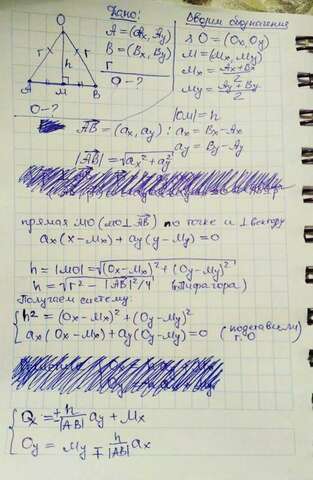 O
r
r
h
A
M
B
O-?
Дано:
A = (Ax, Ay)
B = (Bx, By)
r
O-?
Вводим обозначения
O = (Ox, Oy)
M = (Mx, My)
Mx = Ax+Bx / 2
My = Ay+By / 2
|OM| = h
AB = (ax, ay) : ax = Bx - Ax
ay = By - Ay
|AB| = √ax² + ay²
прямая MO (MO ⊥ AB) по точке и ⊥ вектору
ax(x-Mx) + ay(y-My) = 0
h = |MO| = √(Ox-Mx)² + (Oy-My)²
h = √r² - |AB|²/4 (Пифагора)
Получаем систему:
{ h² = (Ox-Mx)² + (Oy-My)²
ax(Ox-Mx) + ay(Oy-My) = 0 (подставили т. O)
{ Ox = ± h/|AB| ay + Mx
Oy = My ∓ h/|AB| ax